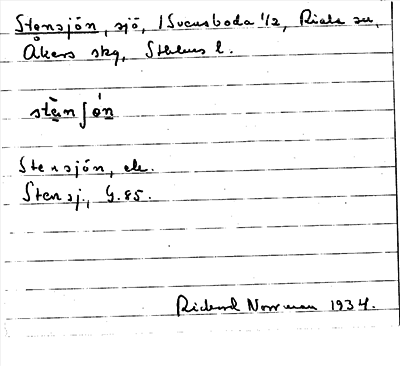 Stensjön, sjö, i Svensboda 1/2, Riala sn,
Åkers skg, Sthlms l.
stènʃón
Stensjön, ek.
Stensj., G.85.
Rickard Norrman 1934.